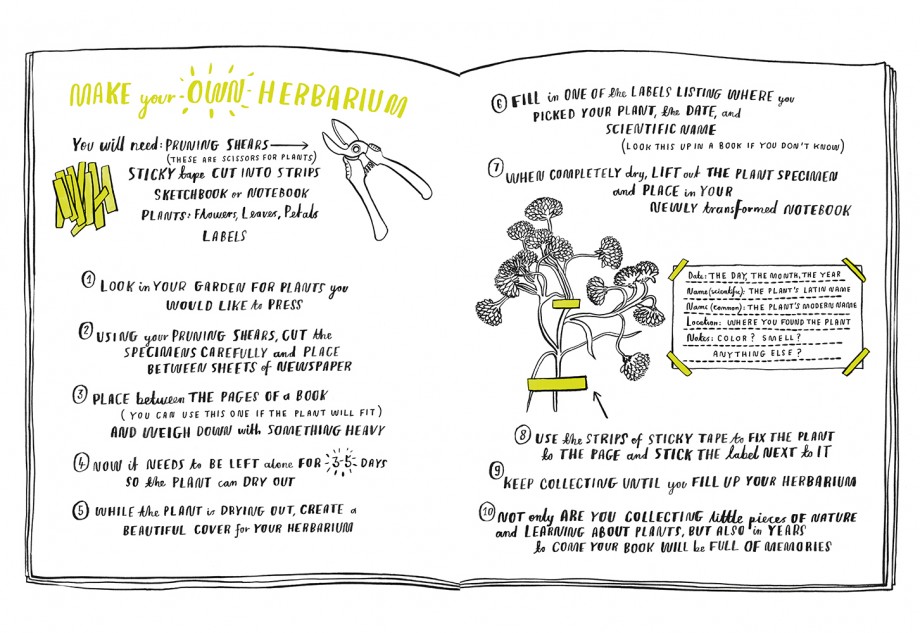 MAKE your OWN HERBARIUM
You will need: PRUNING SHEARS
(THESE ARE SCISSORS FOR PLANTS)
STICKY tape CUT INTO STRIPS
SKETCHBOOK or NOTEBOOK
PLANTS: Flowers, Leaves, Petals
LABELS
1 LOOK in YOUR GARDEN FOR PLANTS you
WOULD LIKE to PRESS
2 USING your PRUNING SHEARS, CUT the
SPECIMENS CAREFULLY and PLACE
BETWEEN SHEETS of NEWSPAPER
3 PLACE between THE PAGES OF a BOOK
(YOU CAN USE THIS ONE IF THE PLANT WILL FIT)
AND WEIGH DOWN with SOMETHING HEAVY
4 NOW it NEEDS to BE LEFT alone FOR 3-5 DAYS
SO the PLANT can DRY OUT
5 WHILE the PLANT is DRYING OUT, CREATE a
BEAUTIFUL COVER for YOUR HERBARIUM
6 FILL in ONE OF the LABELS LISTING WHERE you
PICKED YOUR PLANT, the DATE, and
SCIENTIFIC NAME
(LOOK THIS UP IN A BOOK IF YOU DON'T KNOW)
7 WHEN COMPLETELY dry, LIFT out THE PLANT SPECIMEN
and PLACE in YOUR
NEWLY transformed NOTEBOOK
Date: THE DAY, THE MONTH, THE YEAR
Name (scientific): THE PLANT'S LATIN NAME
Name (common): THE PLANT'S MODERN NAME
Location: WHERE YOU FOUND THE PLANT
Notes: COLOR? SMELL?
ANYTHING ELSE?
8 USE the STRIPS of STICKY TAPE to FIX THE PLANT
to THE PAGE and STICK THE label NEXT to IT
9 KEEP COLLECTING UNTIL you FILL UP YOUR HERBARIUM
10 NOT only ARE YOU COLLECTING little pieces OF NATURE
and LEARNING ABOUT PLANTS, BUT ALSO in YEARS
to COME YOUR BOOK WILL be FULL OF MEMORIES